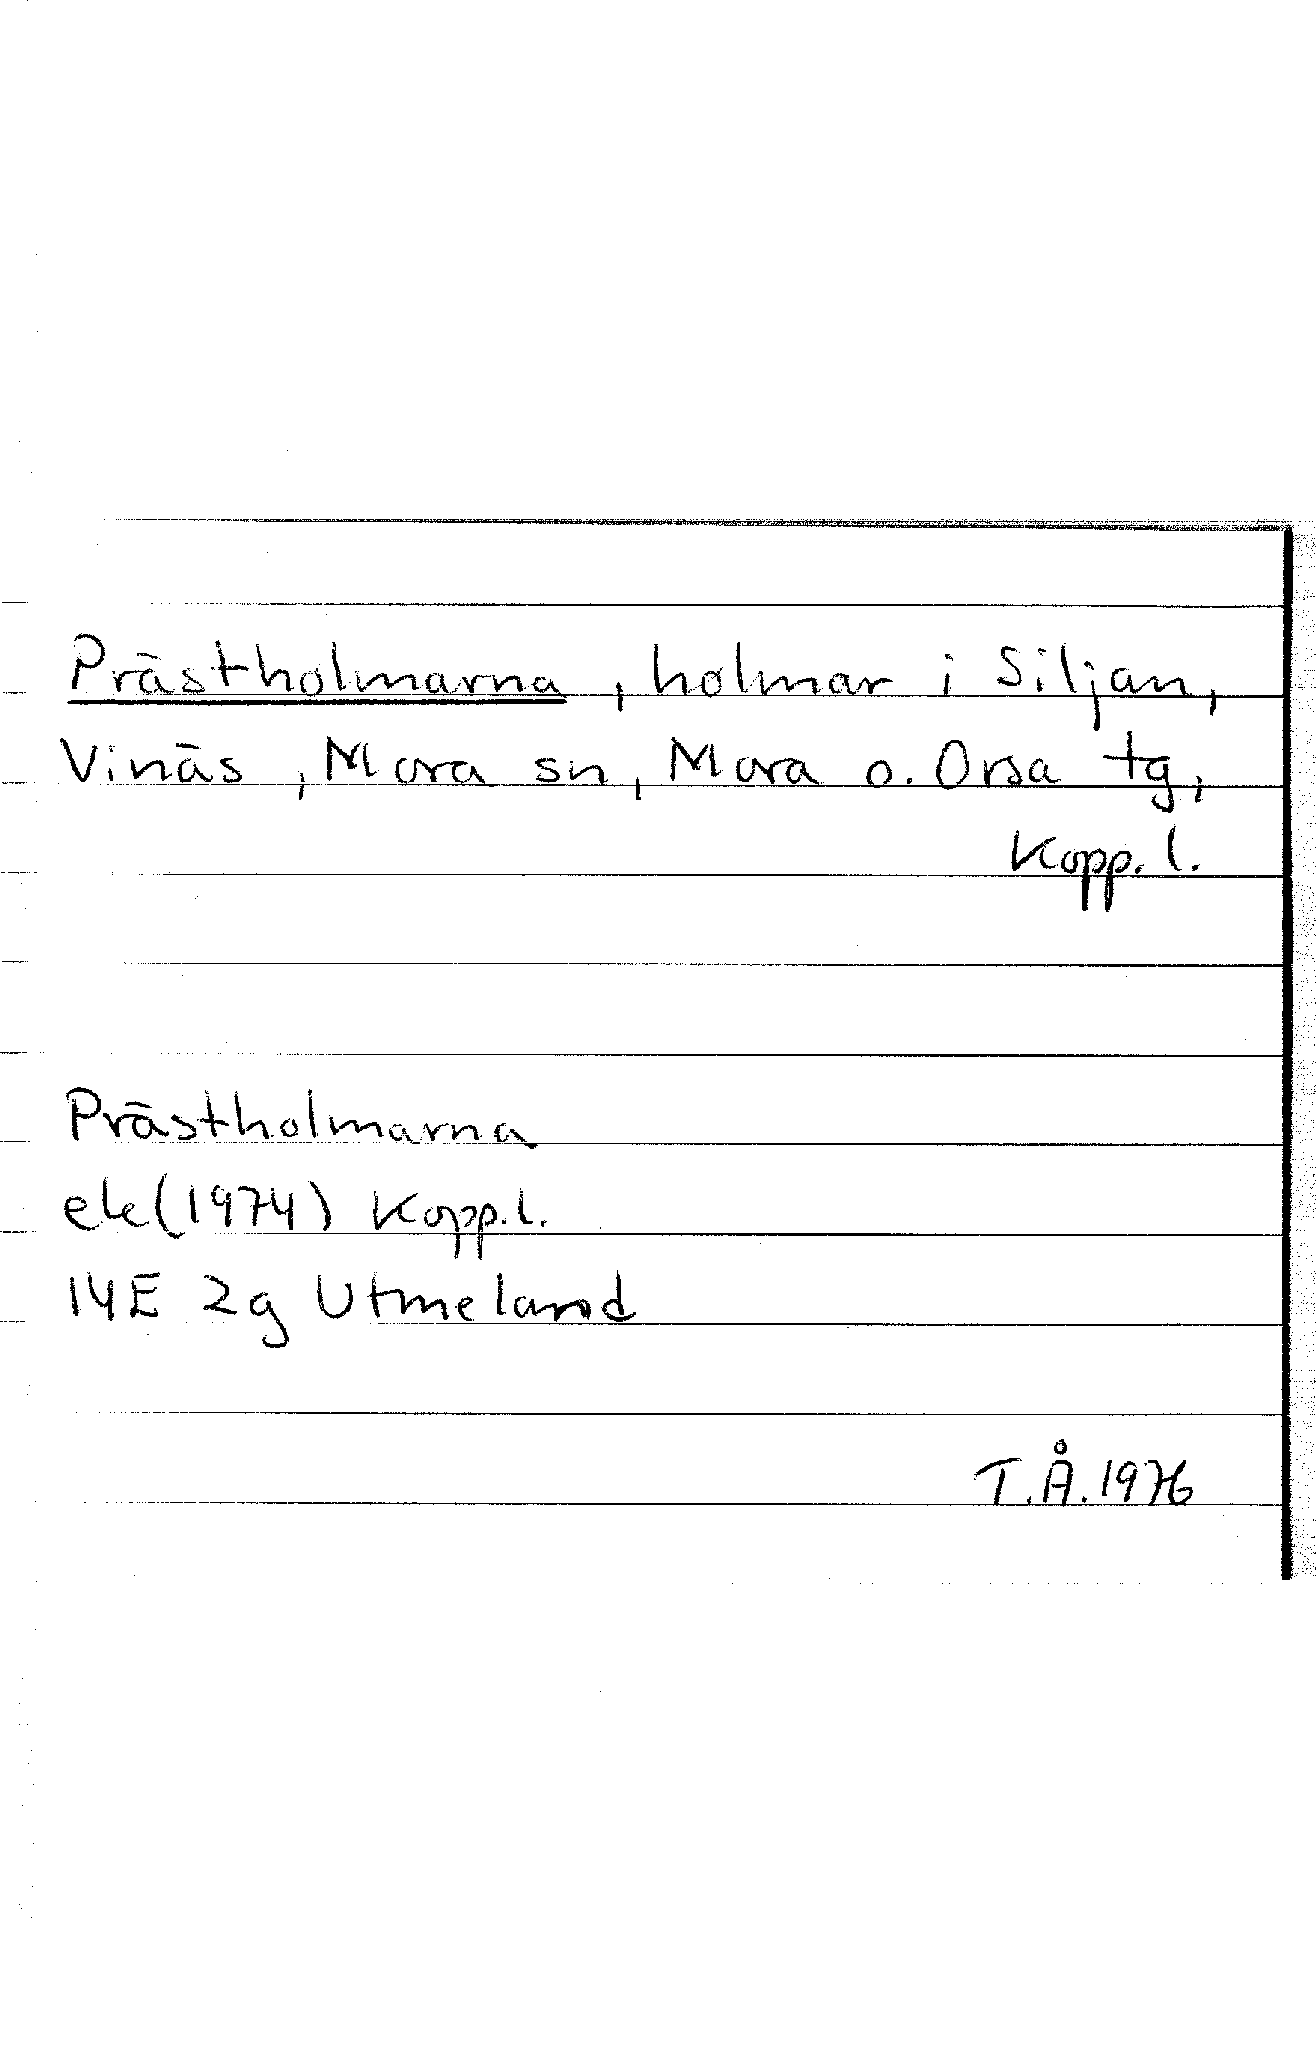 Prästholmarna, holmar i Siljan,
Vinäs, Mora sn, Mora o. Orsa tg,
Kopp. l.
Prästholmarna
ek (1974) Kopp. l.
14E 2g Utmeland
T.Å. 1976